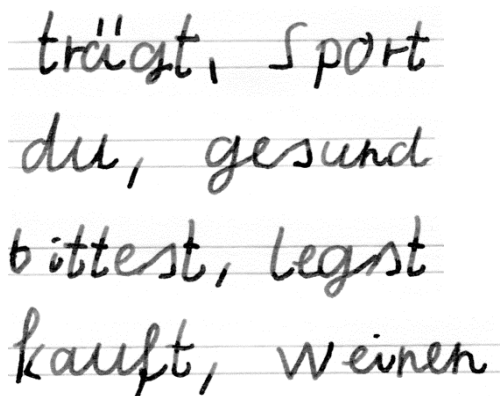 trägt, Sport
du, gesund
bittest, legst
kauft, weinen